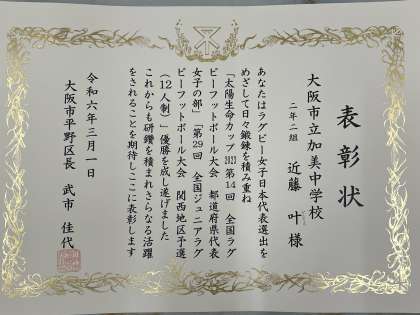 表彰状
大阪市立加美中学校
二年二組 近藤 叶 様
あなたはラグビー女子日本代表選出を
めざして日々鍛錬を積み重ね
「太陽生命カップ2023第14回 全国ラグ
ビーフットボール大会 都道府県代表
女子の部」「第29回 全国ジュニアラグ
ビーフットボール大会 関西地区予選
(12人制)」優勝を成し遂げました
これからも研鑽を積まれさらなる活躍
をされることを期待しここに表彰します
令和六年三月一日
大阪市平野区長 武市 佳代